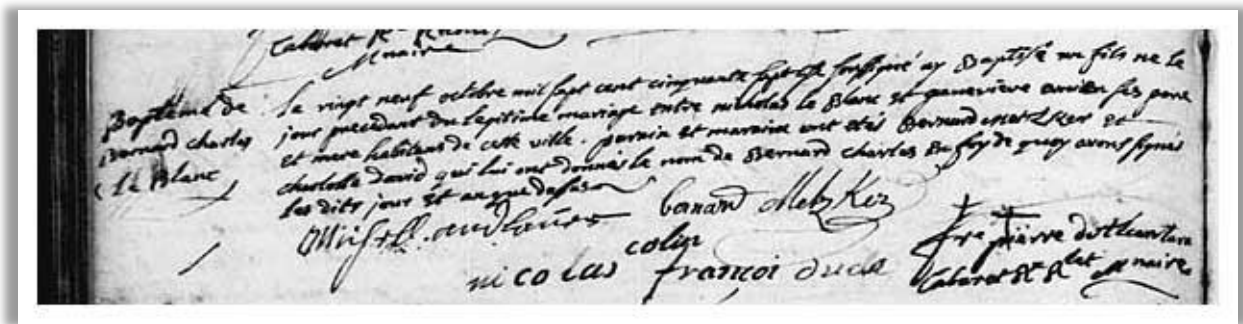 Mnaire
Baptême de
Bernard charles
Le Blanc
Le vingt neuf octobre mil sept cent cinquante sept Je soussigné ay Baptisé un fils né le
jour précédant du legitime mariage entre nicholas le Blanc et geneviève ses pere
et mere habitans de cette ville. parain et maraine ont etés Bernard Metzker et
charlotte david qui lui ont donnés le nom de Bernard charles En foy de quoy avons signés
les dits jour et an que dessus
bernard Metzker
nicolas colin
françoi
fre pierre
Mnaire